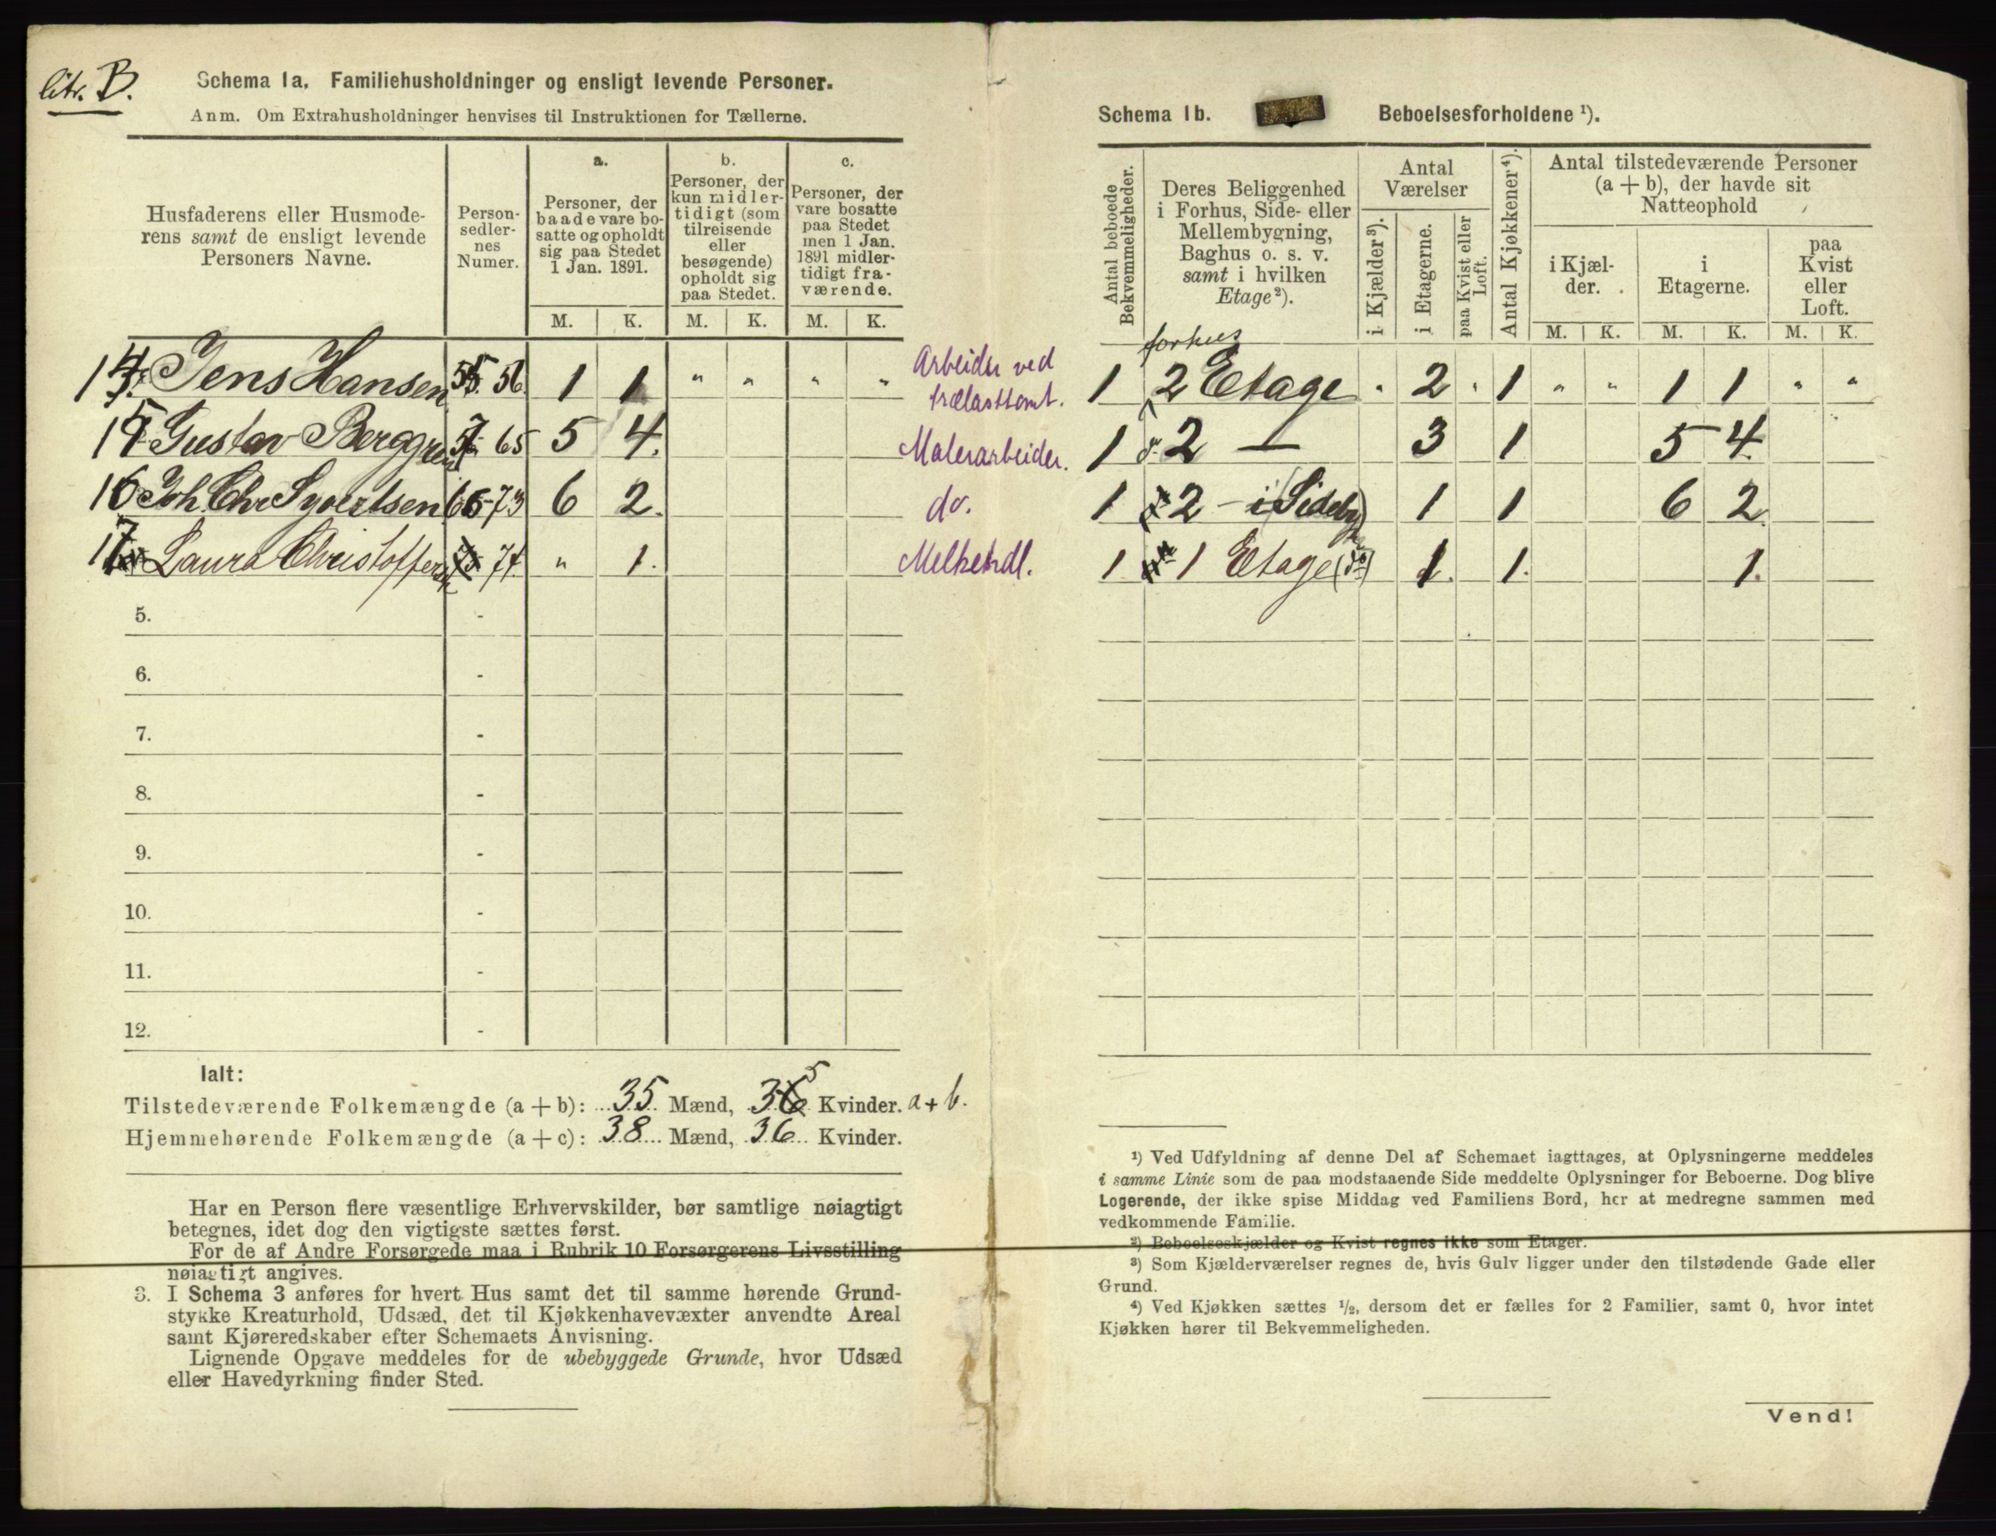 litr. B.
Schema 1a. Familiehusholdninger og ensligt levende Personer.
Anm. Om Extrahusholdninger henvises til Instruktionen for Tællerne.
Husfaderens eller Husmode-
rens samt de ensligt levende
Personers Navne.
Person-
sedler-
nes
Numer.
a.
Personer, der
baade vare bo-
satte og opholdt
sig paa Stedet
1 Jan. 1891.
b.
Personer, der
kun midler-
tidigt (som
tilreisende
eller
besøgende)
opholdt sig
paa Stedet.
c.
Personer, der
vare bosatte
paa Stedet
men 1 Jan.
1891 midler-
tidigt fra-
værende.
M. K. M. K. M. K.
14 Jens Hansen 55. 56. 1 1 " " " " Arbeider ved
trælasttomt.
15 Gustav Berggren 57 65 5 4. Malerarbeider.
16 Joh. Chr Syvertsen 66-73 6 2. do.
17 Laura Christoffersen 74. " 1. Melkehdl.
5. -
6. -
7. -
8. -
9. -
10. -
11. -
12. -
Ialt:
Tilstedeværende Folkemængde (a + b): 35 Mænd, 36 5 Kvinder. a + b.
Hjemmehørende Folkemængde (a + c): 38 Mænd, 36 Kvinder.
Har en Person flere væsentlige Erhvervskilder, bør samtlige nøiagtigt
betegnes, idet dog den vigtigste sættes først.
For de af Andre Forsørgede maa i Rubrik 10 Forsørgerens Livsstilling
nøiagtigt angives.
3. I Schema 3 anføres for hvert Hus samt det til samme hørende Grund-
stykke Kreaturhold, Udsæd, det til Kjøkkenhavevæxter anvendte Areal
samt Kjøreredskaber efter Schemaets Anvisning.
Lignende Opgave meddeles for de ubebyggede Grunde, hvor Udsæd
eller Havedyrkning finder Sted.
Schema 1b. Beboelsesforholdene ¹).
Antal beboede
Bekvemmeligheder.
Deres Beliggenhed
i Forhus, Side- eller
Mellembygning,
Baghus o. s. v.
samt i hvilken
Etage ²).
Antal
Værelser
i Kjælder ³).
i Etagerne.
paa Kvist eller
Loft.
Antal Kjøkkener ⁴).
Antal tilstedeværende Personer
(a + b), der havde sit
Natteophold
i Kjæl-
der.
i
Etagerne.
paa
Kvist
eller
Loft.
M. K. M. K. M. K.
forhus
1 2 Etage " 2 " 1 " " 1 1 " "
1 2 — 3 1 5 4.
1 2 - i (Sideby) 1 1 6 2.
1 1 Etage (do) 1. 1. 1.
¹) Ved Udfyldning af denne Del af Schemaet iagttages, at Oplysningerne meddeles
i samme Linie som de paa modstaaende Side meddelte Oplysninger for Beboerne. Dog blive
Logerende, der ikke spise Middag ved Familiens Bord, her at medregne sammen med
vedkommende Familie.
²) Beboelseskjælder og Kvist regnes ikke som Etager.
³) Som Kjælderværelser regnes de, hvis Gulv ligger under den tilstødende Gade eller
Grund.
⁴) Ved Kjøkken sættes ½, dersom det er fælles for 2 Familier, samt 0, hvor intet
Kjøkken hører til Bekvemmeligheden.
Vend!